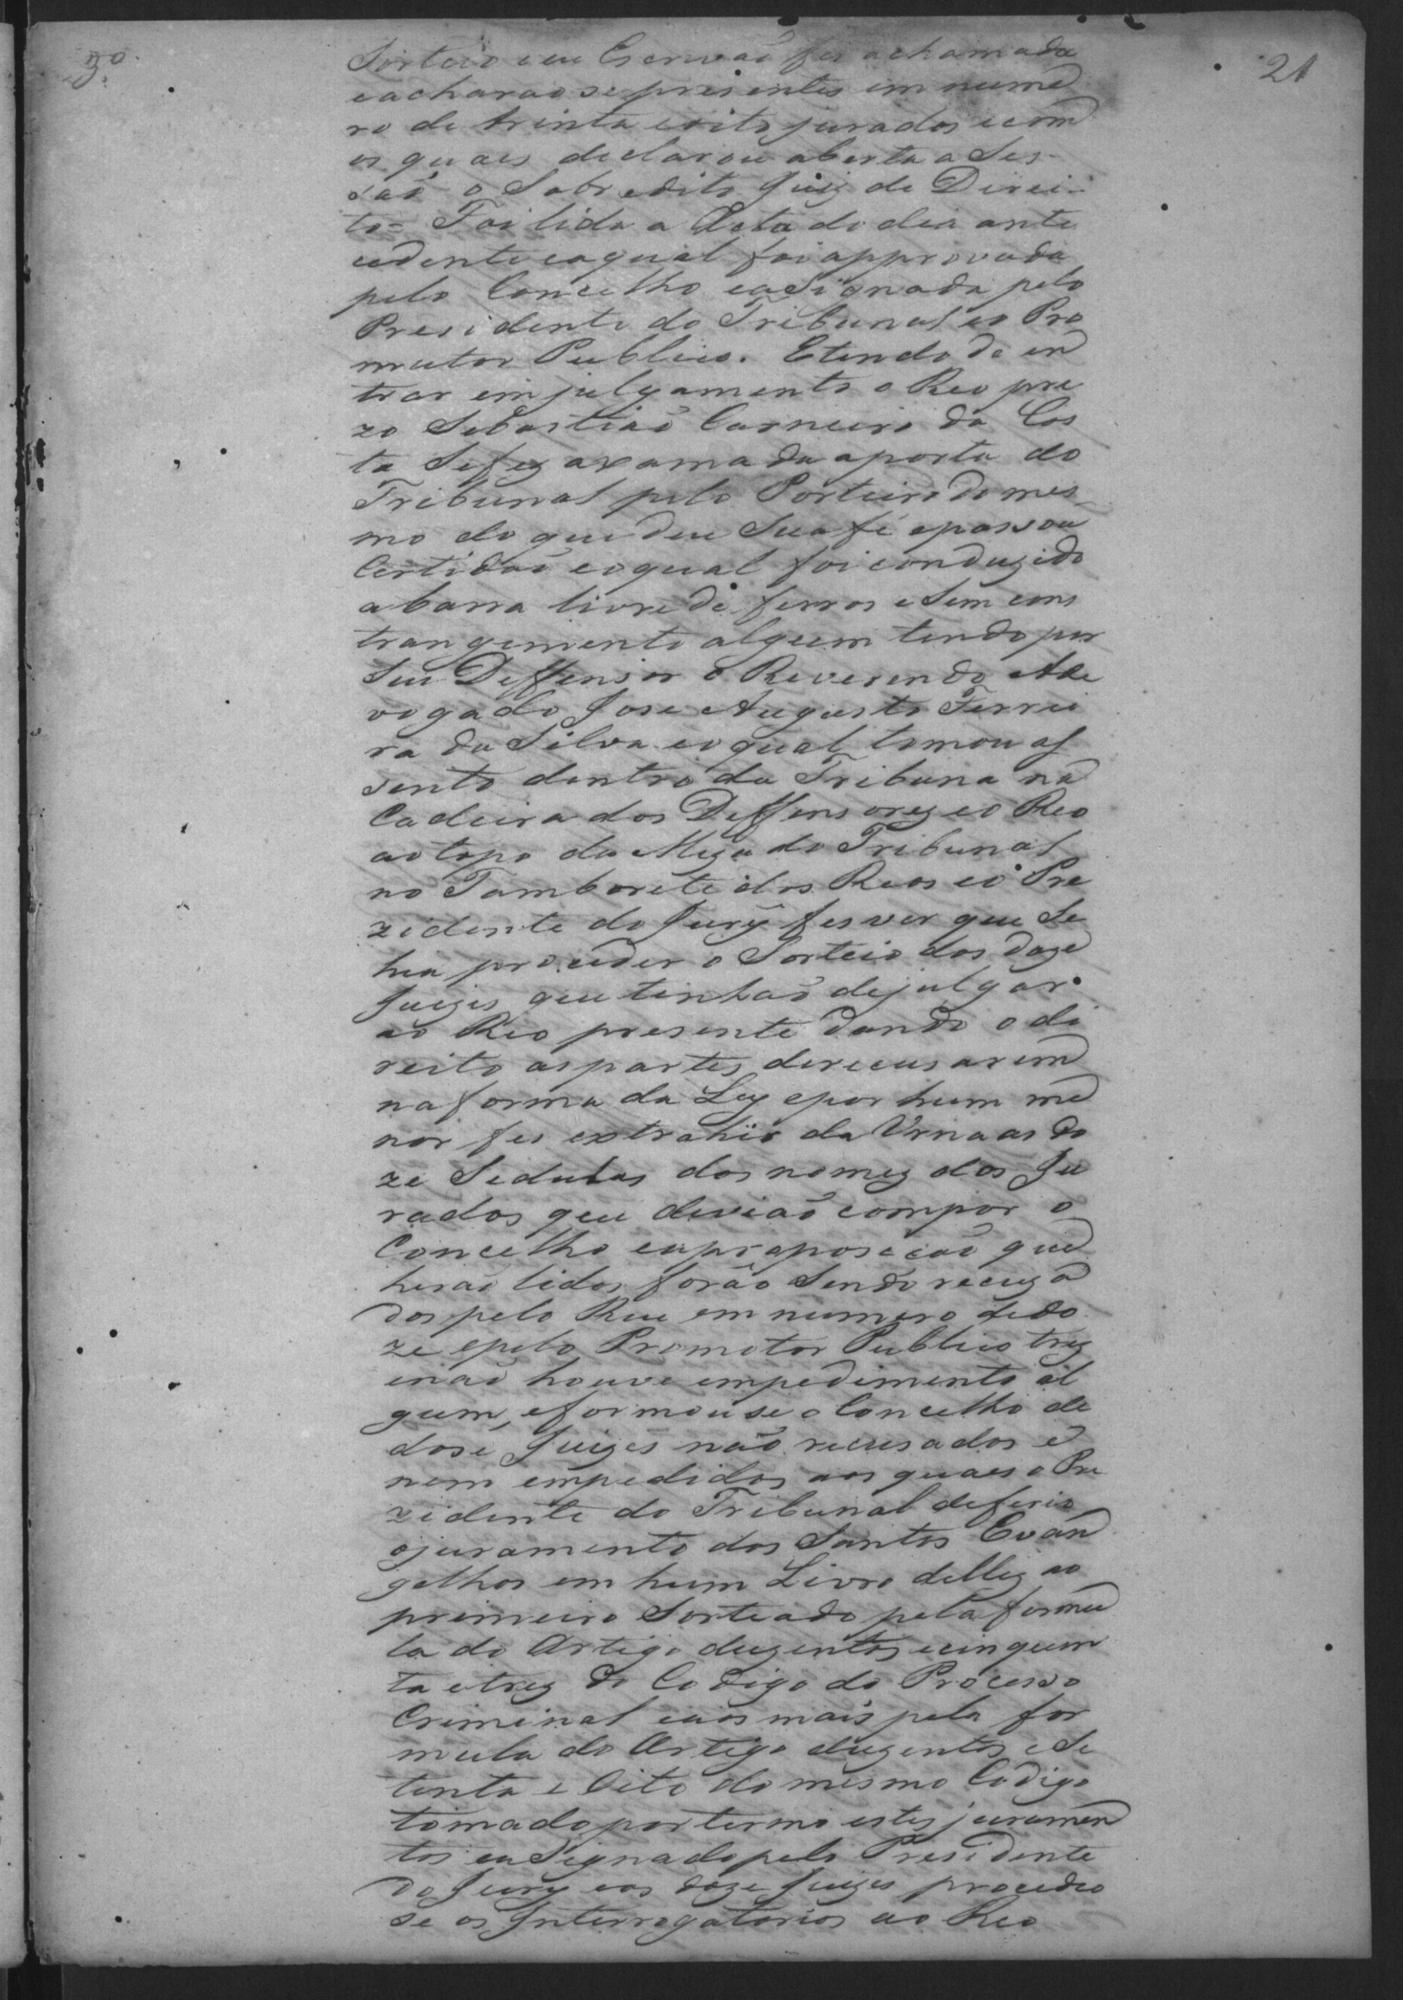 21
Sorteio e eu Escrivaõ fes a chamada
e acharaõ se presentes em nume
ro de trinta e oito jurados e com
os quaes declarou aberta a Ses-
saõ o Sobredito Juiz de Direi-
to= Foi lida a Acta do dia ante
cedente e a qual foi approvada
pelo Concelho e asignada pelo
Presidente do Tribunal e o Pro
mutor Publico. E tendo de en
trar em julgamento o Reo pre
zo Sebastiaõ Carneiro da Cos
ta Se fez a xamada a porta do
Tribunal pelo Porteiro do mes-
mo do que deu Sua fé e passou
Certidaõ e o qual foi conduzido
a barra livre de ferros e Sem cons
trangimento alguem tendo por
Seu Deffensor o Reverendo Ad
vogado Jose Augusto Ferrei
ra da Silva e o qual tomou as
sento dentro da Tribuna na
Cadeira dos Deffensorez e o Reo
ao topo da Meza do Tribunal
no Tamborete dos Reos e o Pre
zidente do Jury fes ver que Se
hia proceder o Sorteio dos doze
Juizes que tinhaõ de julgar
ao Reo presente dando o di
reito as partes de recusarem
na forma da Ley e por hum me
nor fes extrahir da Urna as do
ze Sedulas dos nomez dos Ju
rados que deviaõ compor o
Concelho e a proposiçaõ que
heraõ lidos foraõ Sendo recuza
dos pelo Reu em numero de do
ze e pelo Promotor Publico trez
e naõ houve empedimento al
gum, e formou se o Concelho de
dose Juizes naõ recusados e
nem empedidos aos quaes o Pre
zidente do Tribunal deferio
o juramento dos Santos Evan
gelhos em hum Livro dellez ao
primeiro Sorteado pela formu
la do Artigo duzentos e cinquen
ta e trez do Codigo do Processo
Criminal e aos mais pela for
mula do Artigo duzentos e Se
tenta e Oito do mesmo Codigo
tomado por termo estes juramen
tos e asignado pelo Presidente
do Jury e os doze Juizes procedeo
se os Interrogatorios ao Reo